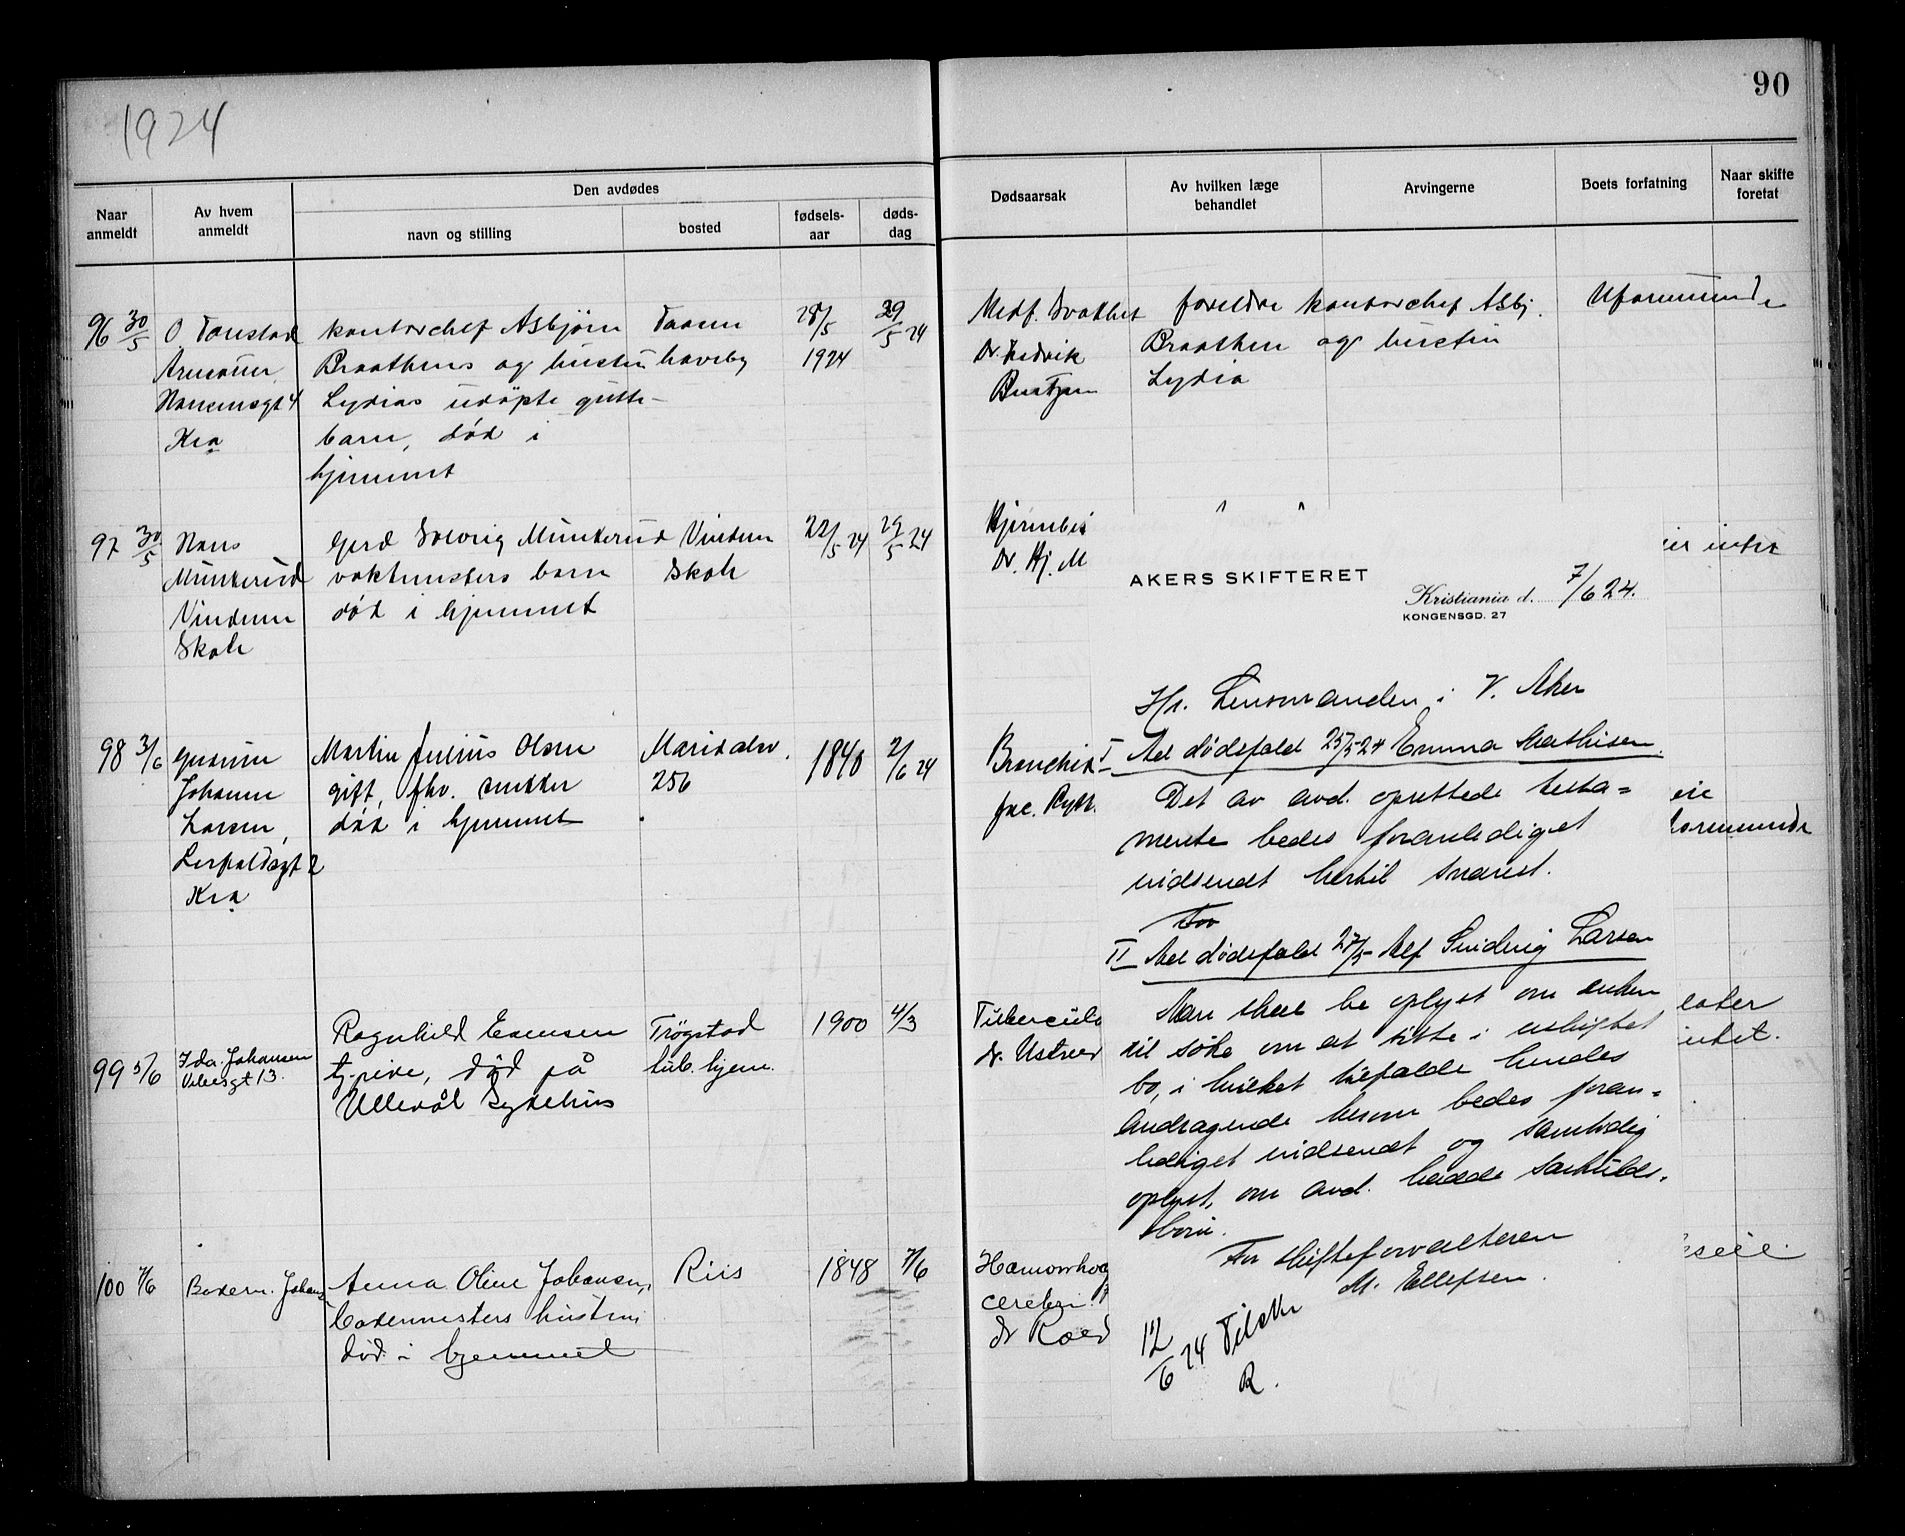 1924
90
Naar anmeldt
Av hvem anmeldt
Den avdødes
navn og stilling
bosted
fødsels-aar
døds-dag
Dødsaarsak
Av hvilken læge behandlet
Arvingerne
Boets forfatning
Naar skifte foretat
96 30/5
O. Tanstad
Nansensgt 4
Kra
kontorchef Asbjørn
Braathens og hustru
Lydias udøpte gutte-
barn, død i
hjemmet
Taasen
haveby
28/5
1924
29/5 24
Medf. Svakhet
Dr. Fredrik
foreldre kontorchef Asbj.
Braathen og hustru
Lydia
Uformuende
97 30/5
Hans
Munkerud
Vinderen
Skole
Gerd Solveig Munkerud
vaktmesters barn
død i hjemmet
Vinderen
Skole
22/5 24
29/5 24
Dr. Hj. M
98 3/6
Gudrun
Johanne
Larsen,
Kra
Martin Julius Olsen
gift, fhv. snekker
død i hjemmet
Maridalsv.
256
1840
2/6 24
99 5/6
Ida Johansen
Vibesgt 13.
Ragnhild Evensen
tj.pike, død på
Ullevål Sykehus
Trøgstad
tub. hjem.
1900
4/3
Tubercul
dr. Ustved
100 7/6
Badem. Johans
Anna Oline Johansen,
bademesters hustru,
død i hjemmet
Riis
1848
7/6
Hæmorrhag
cerebri
dr Roed
AKERS SKIFTERET
Kristiania d. 7/6 24.
KONGENSGD. 27
Hr. Lensmanden i V. Aker
I Ad dødsfald 25/5-24 Emma Mathisen.
Det av avd. oprettede testa=
mente bedes foranlediget
indsendt hertil snarest.
For
II Ad dødsfald 27/5- Alf Sinding Larsen
Man skal be oplyst om enken
vil søke om at sitte i uskiftet
bo, i hvilket tilfælde hendes
andragende herom bedes foran=
lediget indsendt og samtidig
oplyst, om avd. hadde særkulds-
børn.
For skifteforvalteren
M. Ellefsen.
12/6 24
R.